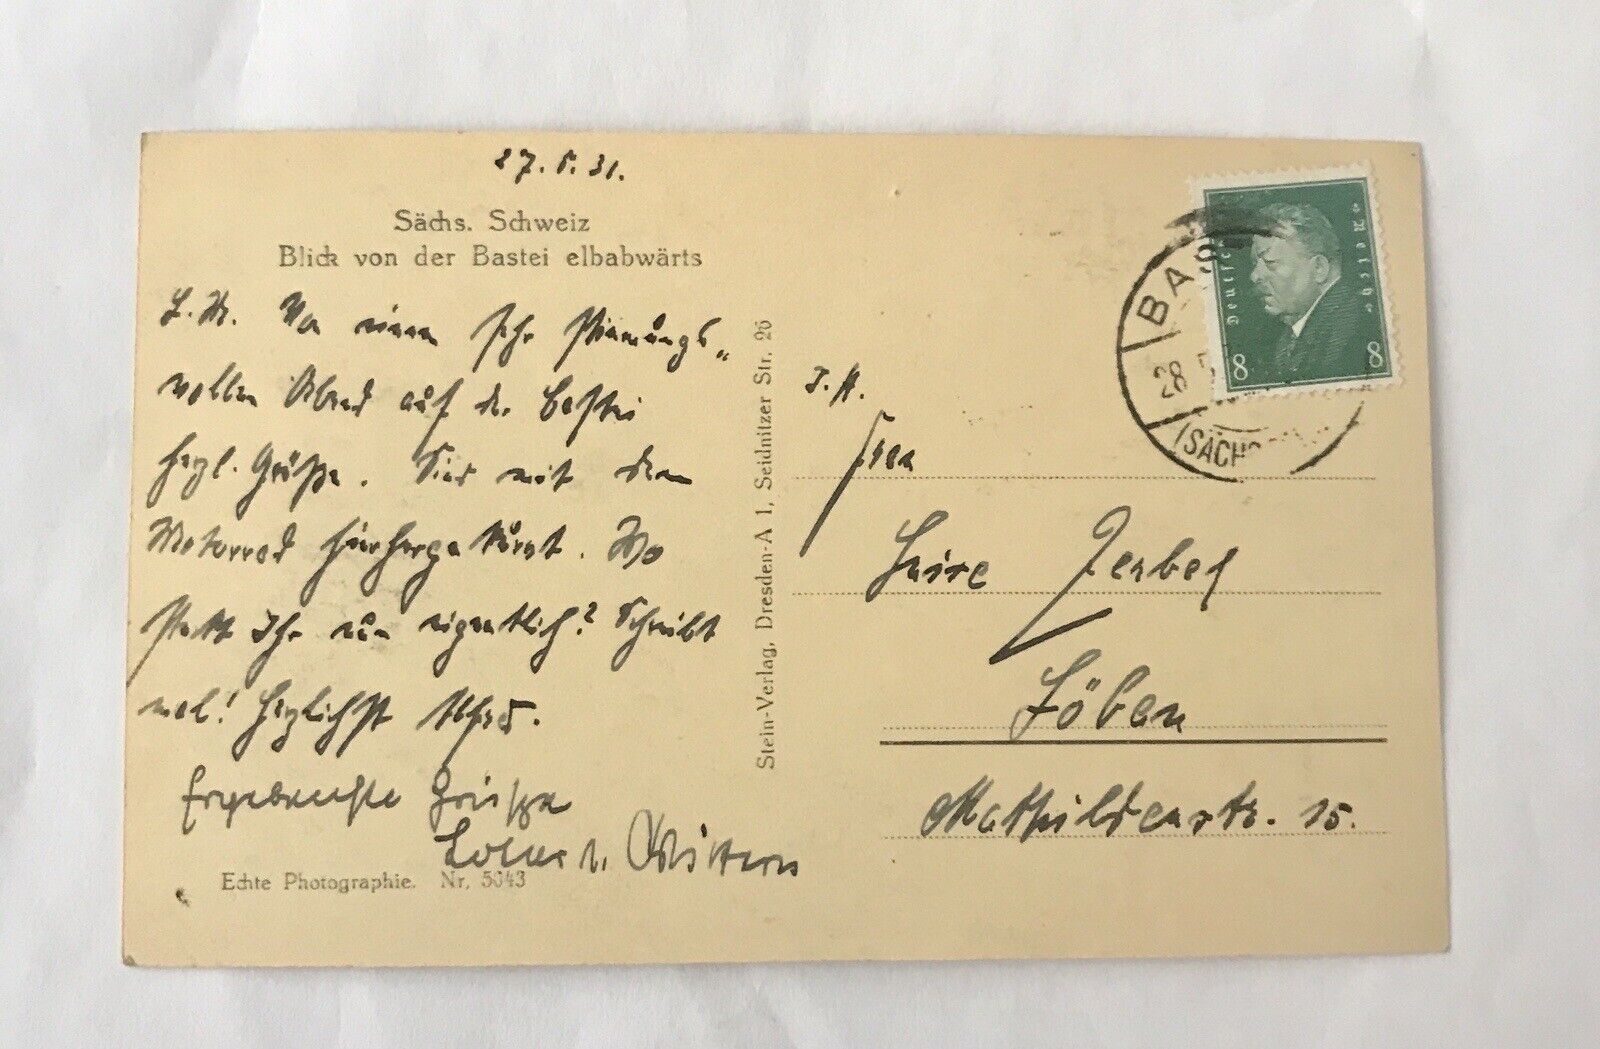 27.5.31.
Sächs. Schweiz
Blick von der Bastei elbabwärts
L. M. Von einem sehr stimmungs„
vollen Abend auf der Bastei
herzl. Grüße. Sind mit dem
Motorrad hierher
Wo
steckt Ihr nun eigentlich? Schreibt
mal! Herzlichst
Ergebenste Grüße
Echte Photographie. Nr. 5043
Stein-Verlag, Dresden-A 1, Seidnitzer Str. 26
Deutsches Reich
8 8
BAS
28.5
(SACHS
Frau
Zerbes
Löben
Mathildenstr. 15.